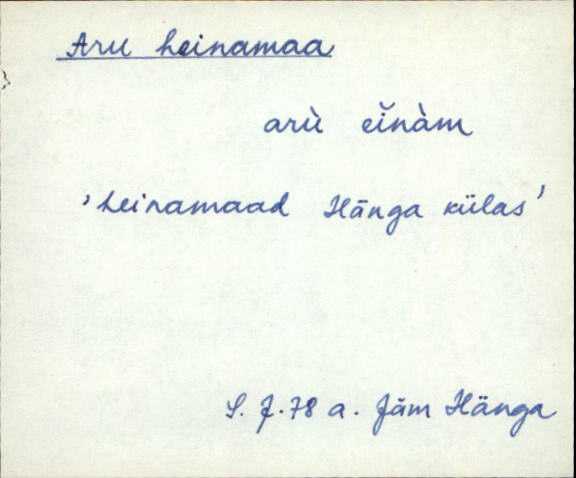 Aru heinamaa
arù eĭnàm
'heinamaad Hänga külas'
S. J. 78 a. Jäm Hänga